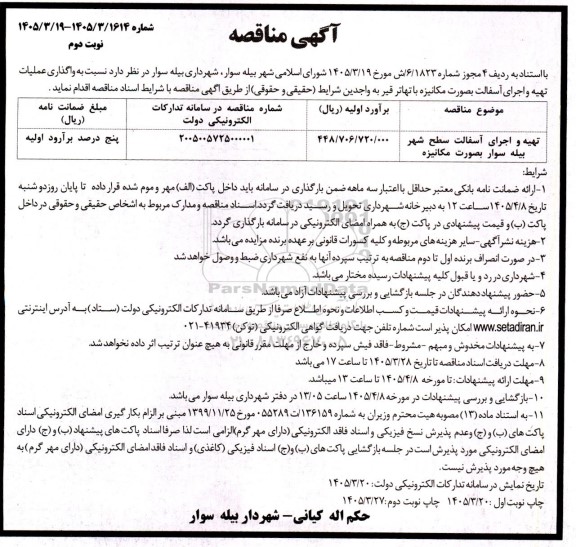 شماره ۱۶۱۴-۱۴۰۵/۳/۱۹-۱۴۰۵/۳
نوبت دوم
آگهی مناقصه
بااستناد به ردیف ۴ مجوز شماره ۶/۱۸۲۳/ش مورخ ۱۴۰۵/۳/۱۹ شورای اسلامی شهر بیله سوار، شهرداری بیله سوار در نظر دارد نسبت به واگذاری عملیات
تهیه و اجرای آسفالت بصورت مکانیزه با تهاتر قیر به واجدین شرایط (حقیقی و حقوقی) از طریق آگهی مناقصه با شرایط اسناد مناقصه اقدام نماید.
موضوع مناقصه
برآورد اولیه (ریال)
شماره مناقصه در سامانه تدارکات الکترونیکی دولت
مبلغ ضمانت نامه (ریال)
تهیه و اجرای آسفالت سطح شهر بیله سوار بصورت مکانیزه
۴۴۸/۷۰۶/۷۲۰/۰۰۰
۲۰۰۵۰۰۵۷۲۵۰۰۰۰۰۱
پنج درصد برآرود اولیه
شرایط:
۱-ارائه ضمانت نامه بانکی معتبر حداقل با اعتبار سه ماهه ضمن بارگذاری در سامانه باید داخل پاکت (الف) مهر و موم شده قرار داده تا پایان روز دو شنبه
تاریخ ۱۴۰۵/۴/۸ ساعت ۱۲ به دبیرخانه شهرداری تحویل و رسید دریافت گردد. اسناد مناقصه و مدارک مربوط به اشخاص حقیقی و حقوقی در داخل
پاکت (ب) و قیمت پیشنهادی در پاکت (ج) به همراه امضای الکترونیکی در سامانه بارگذاری گردد.
۲-هزینه نشر آگهی-سایر هزینه های مربوطه و کلیه کسورات قانونی بر عهده برنده مزایده می باشد.
۳-در صورت انصراف برنده اول تا دوم مناقصه به ترتیب سپرده آنها به نفع شهرداری ضبط و وصول خواهد شد
۴-شهرداری در رد و یا قبول کلیه پیشنهادات رسیده مختار می باشد.
۵-حضور پیشنهاد دهندگان در جلسه بازگشایی و بررسی پیشنهادات آزاد می باشد.
۶-نحوه ارائه پیشنهادات قیمت و کسب اطلاعات و نحوه اطلاع صرفا از طریق سامانه تدارکات الکترونیکی دولت (ستاد) به آدرس اینترنتی
www.setadiran.ir امکان پذیر است شماره تلفن جهت دریافت گواهی الکترونیکی (توکن) ۴۱۹۳۴-۰۲۱
۷-به پیشنهادات مخدوش و مبهم -مشروط-فاقد فیش سپرده و خارج از مهلت مقرر قانونی به هیچ عنوان ترتیب اثر داده نخواهد شد.
۸-مهلت دریافت اسناد مناقصه تا تاریخ ۱۴۰۵/۳/۲۸ تا ساعت ۱۷ می باشد
۹-مهلت ارائه پیشنهادات: تا مورخه ۱۴۰۵/۴/۸ تا ساعت ۱۳ میباشد.
۱۰-بازگشایی و بررسی پیشنهادات در مورخه ۱۴۰۵/۴/۸ ساعت ۱۳/۰۵ در دفتر شهرداری بیله سوار می باشد.
۱۱-به استناد ماده (۱۳) مصوبه هیت محترم وزیران به شماره ۱۳۶۱۵۹/ت۵۵۲۸۹ مورخ ۱۳۹۹/۱۱/۲۵ مبنی بر الزام بکار گیری امضای الکترونیکی اسناد
پاکت های (ب) و (ج) و عدم پذیرش نسخ فیزیکی و اسناد فاقد الکترونیکی (دارای مهر گرم) الزامی است لذا صرفا اسناد پاکت های پیشنهاد (ب) و (ج) دارای
امضای الکترونیکی مورد پذیرش است در جلسه بازگشایی پاکت های (ب) و (ج) اسناد فیزیکی (کاغذی) و اسناد فاقد امضای الکترونیکی (دارای مهر گرم) به
هیچ وجه مورد پذیرش نیست.
تاریخ نمایش در سامانه تدارکات الکترونیکی دولت: ۱۴۰۵/۳/۲۰
چاپ نوبت اول: ۱۴۰۵/۳/۲۰ چاپ نوبت دوم: ۱۴۰۵/۳/۲۷
حکم اله کیانی- شهردار بیله سوار